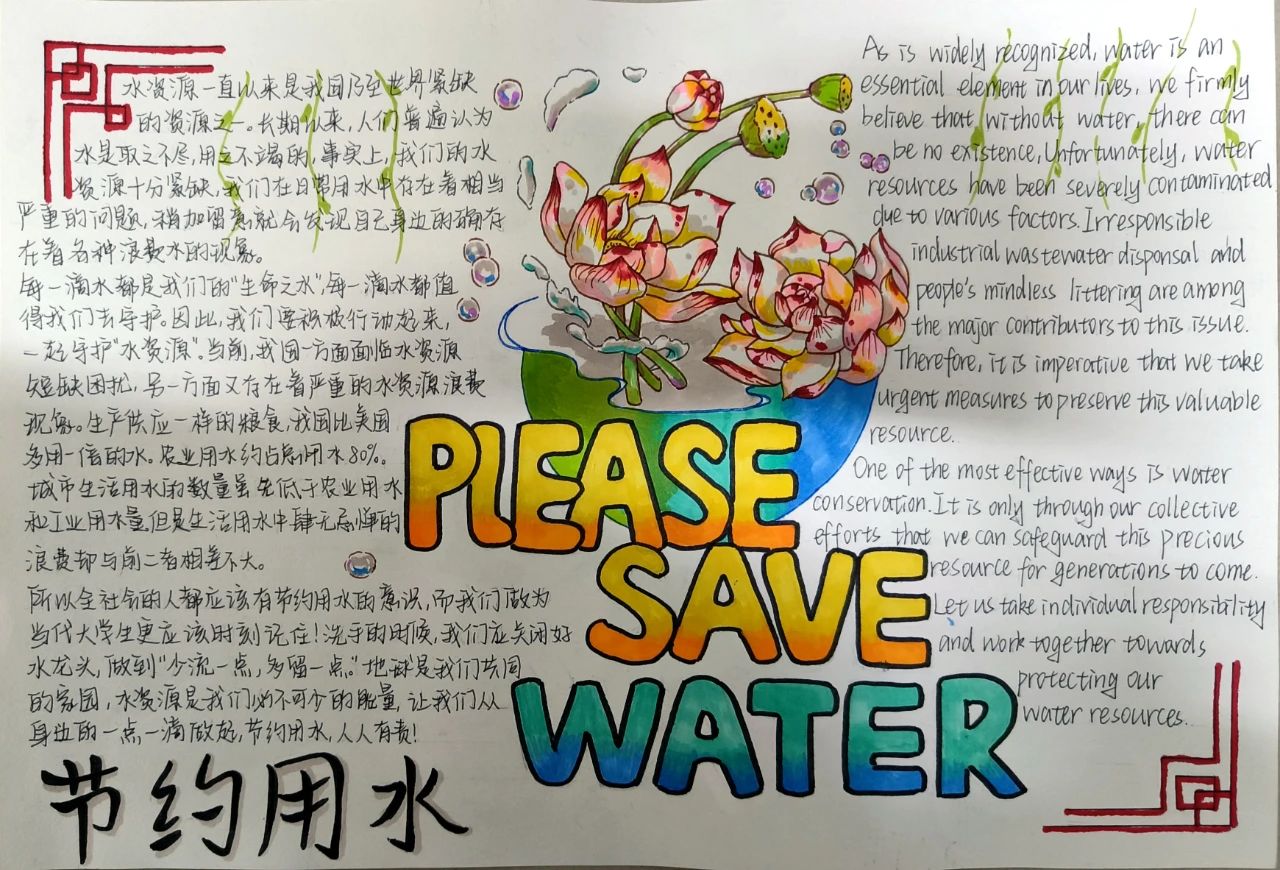 水资源一直以来是我国乃至世界紧缺
的资源之一。长期以来,人们普遍认为
水是取之不尽,用之不竭的,事实上,我们的水
资源十分紧缺,我们在日常用水中存在着相当
严重的问题,稍加留意就会发现自己身边的确存
在着各种浪费水的现象。
每一滴水都是我们的"生命之水",每一滴水都值
得我们去守护。因此,我们要积极行动起来,
一起守护"水资源"。当前,我国一方面面临水资源
短缺困扰,另一方面又存在着严重的水资源浪费
现象。生产供应一样的粮食,我国比美国
多用一倍的水。农业用水约占总用水80%。
城市生活用水的数量虽先低于农业用水
和工业用水量,但是生活用水中肆无忌惮的
浪费却与前二者相差不大。
所以全社会的人都应该有节约用水的意识,而我们做为
当代大学生更应该时刻记住!洗手的时候,我们应关闭好
水龙头,做到"少流一点,多留一点。"地球是我们共同
的家园,水资源是我们必不可少的能量,让我们从
身边的一点一滴做起,节约用水,人人有责!
节约用水
PLEASE
SAVE
WATER
As is widely recognized, water is an
essential element in our lives, we firmly
believe that without water, there can
be no existence, Unfortunately, water
resources have been severely contaminated
due to various factors. Irresponsible
industrial wastewater disponsal and
people's mindless littering are among
the major contributors to this issue.
Therefore, it is imperative that we take
urgent measures to preserve this valuable
resource.
One of the most effective ways is water
conservation. It is only through our collective
efforts that we can safeguard this precious
resource for generations to come.
Let us take individual responsibility
and work together towards
protecting our
water resources.